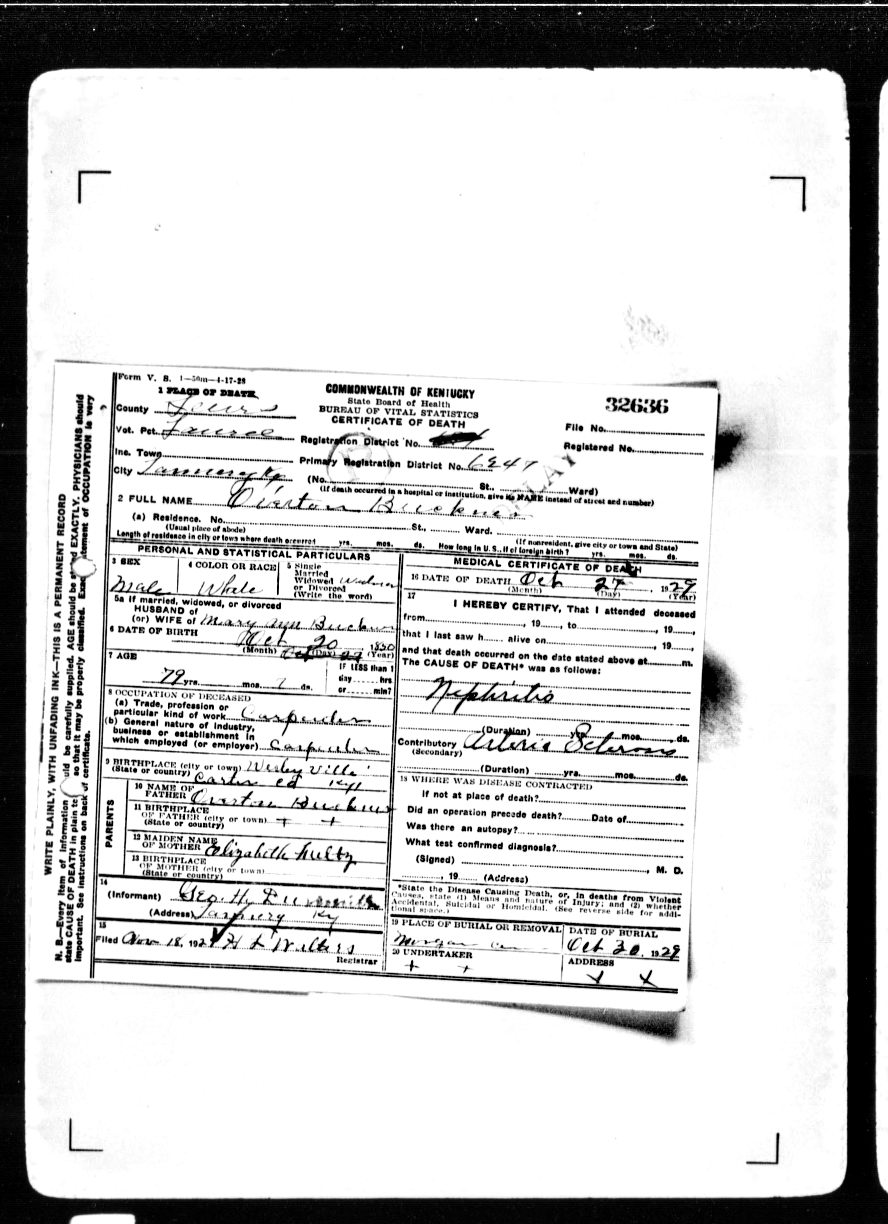 Form V. S. 1—50m—4-17-28
1 PLACE OF DEATH
County Lewis
Vot. Pct. Laurel
Inc. Town
City
COMMONWEALTH OF KENTUCKY
State Board of Health
BUREAU OF VITAL STATISTICS
CERTIFICATE OF DEATH
Registration District No.
Primary Registration District No. 6247
(No. St., Ward)
(If death occurred in a hospital or institution, give its NAME instead of street and number)
32636
File No.
Registered No.
DELAY
2 FULL NAME Overton Buckner
(a) Residence. No. St., Ward.
(Usual place of abode) (If nonresident, give city or town and State)
Length of residence in city or town where death occurred yrs. mos. ds. How long in U. S., if of foreign birth? yrs. mos. ds.
PERSONAL AND STATISTICAL PARTICULARS
3 SEX
Male
4 COLOR OR RACE
White
5 Single
Married
Widowed
or Divorced
(Write the word)
5a If married, widowed, or divorced
HUSBAND of
(or) WIFE of Mary Ann Buckner
6 DATE OF BIRTH Oct 20 1850
(Month) (Day) (Year)
7 AGE
79 yrs. mos. 7 ds.
If LESS than 1
day hrs
or min?
8 OCCUPATION OF DECEASED
(a) Trade, profession or
particular kind of work Carpenter
(b) General nature of industry,
business or establishment in
which employed (or employer) Carpenter
9 BIRTHPLACE (city or town) Wesley Ville
(State or country) Carter Co Ky
PARENTS
10 NAME OF
FATHER Overton Buckner
11 BIRTHPLACE
OF FATHER (city or town) + +
(State or country)
12 MAIDEN NAME
OF MOTHER Elizabeth
13 BIRTHPLACE
OF MOTHER (city or town)
(State or country)
14
(Informant) Geo. H.
(Address) Ky
15
Filed Nov 18, 1929 H L Walters
Registrar
MEDICAL CERTIFICATE OF DEATH
16 DATE OF DEATH Oct 27, 1929
(Month) (Day) (Year)
17
I HEREBY CERTIFY, That I attended deceased
from , 19 , to , 19
that I last saw h alive on , 19
and that death occurred on the date stated above at m.
The CAUSE OF DEATH* was as follows:
Nephritis
(Duration) yrs. mos. ds.
Contributory Arterio Scleros
(Secondary)
(Duration) yrs. mos. ds.
18 WHERE WAS DISEASE CONTRACTED
If not at place of death?
Did an operation precede death? Date of
Was there an autopsy?
What test confirmed diagnosis?
(Signed) , M. D.
, 19 (Address)
*State the Disease Causing Death, or, in deaths from Violent
Causes, state (1) Means and nature of Injury; and (2) whether
Accidental, Suicidal or Homicidal. (See reverse side for addi-
tional space.)
19 PLACE OF BURIAL OR REMOVAL
Morgan Cem
DATE OF BURIAL
Oct 30, 1929
20 UNDERTAKER
+ +
ADDRESS
x x
WRITE PLAINLY, WITH UNFADING INK—THIS IS A PERMANENT RECORD
N. B.—Every item of information should be carefully supplied. AGE should be stated EXACTLY. PHYSICIANS should
state CAUSE OF DEATH in plain terms so that it may be properly classified. Exact statement of OCCUPATION is very
important. See instructions on back of certificate.